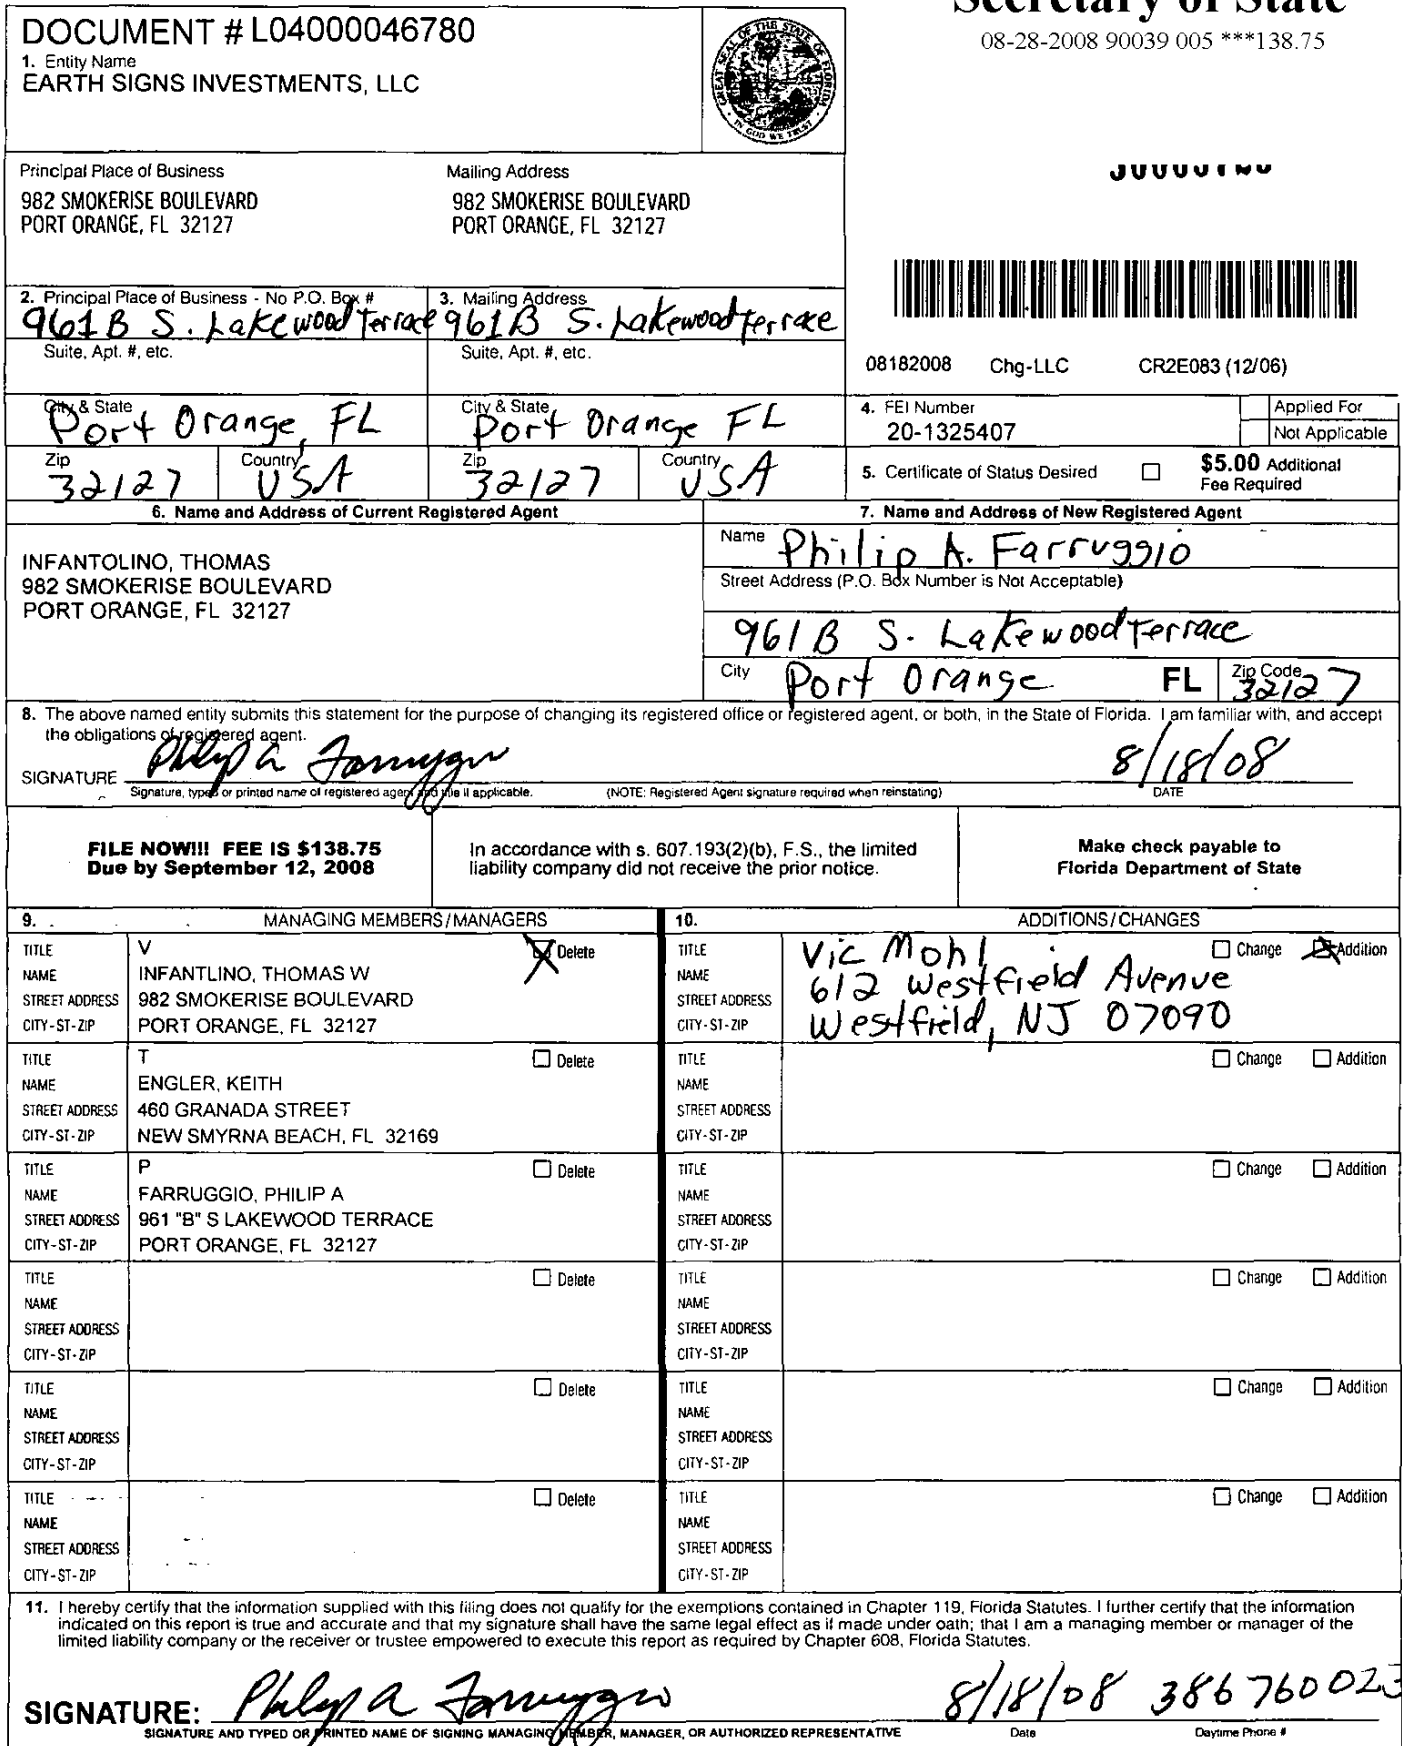 Secretary of State
08-28-2008 90039 005 ***138.75
DOCUMENT # L04000046780
1. Entity Name
EARTH SIGNS INVESTMENTS, LLC
GREAT SEAL OF THE STATE OF FLORIDA
IN GOD WE TRUST
Principal Place of Business
982 SMOKERISE BOULEVARD
PORT ORANGE, FL 32127
Mailing Address
982 SMOKERISE BOULEVARD
PORT ORANGE, FL 32127
2. Principal Place of Business - No P.O. Box #
961B S. Lakewood Terrace
3. Mailing Address
961B S. Lakewood Terrace
Suite, Apt. #, etc.
Suite, Apt. #, etc.
08182008 Chg-LLC CR2E083 (12/06)
City & State
Port Orange, FL
City & State
Port Orange FL
Zip
32127
Country
USA
Zip
32127
Country
USA
4. FEI Number
20-1325407
Applied For
Not Applicable
5. Certificate of Status Desired
$5.00 Additional
Fee Required
6. Name and Address of Current Registered Agent
INFANTOLINO, THOMAS
982 SMOKERISE BOULEVARD
PORT ORANGE, FL 32127
7. Name and Address of New Registered Agent
Name Philip A. Farruggio
Street Address (P.O. Box Number is Not Acceptable)
961B S. Lakewood Terrace
City Port Orange FL Zip Code 32127
8. The above named entity submits this statement for the purpose of changing its registered office or registered agent, or both, in the State of Florida. I am familiar with, and accept
the obligations of registered agent.
SIGNATURE Philip A Farruggio 8/18/08
Signature, typed or printed name of registered agent and title if applicable. (NOTE: Registered Agent signature required when reinstating) DATE
FILE NOW!!! FEE IS $138.75
Due by September 12, 2008
In accordance with s. 607.193(2)(b), F.S., the limited
liability company did not receive the prior notice.
Make check payable to
Florida Department of State
9. MANAGING MEMBERS/MANAGERS
TITLE V Delete
NAME INFANTLINO, THOMAS W
STREET ADDRESS 982 SMOKERISE BOULEVARD
CITY-ST-ZIP PORT ORANGE, FL 32127
TITLE T Delete
NAME ENGLER, KEITH
STREET ADDRESS 460 GRANADA STREET
CITY-ST-ZIP NEW SMYRNA BEACH, FL 32169
TITLE P Delete
NAME FARRUGGIO, PHILIP A
STREET ADDRESS 961 "B" S LAKEWOOD TERRACE
CITY-ST-ZIP PORT ORANGE, FL 32127
TITLE Delete
NAME
STREET ADDRESS
CITY-ST-ZIP
TITLE Delete
NAME
STREET ADDRESS
CITY-ST-ZIP
TITLE Delete
NAME
STREET ADDRESS
CITY-ST-ZIP
10. ADDITIONS/CHANGES
TITLE Vic Mohl Change Addition
NAME 612 Westfield Avenue
STREET ADDRESS
CITY-ST-ZIP Westfield, NJ 07090
TITLE Change Addition
NAME
STREET ADDRESS
CITY-ST-ZIP
TITLE Change Addition
NAME
STREET ADDRESS
CITY-ST-ZIP
TITLE Change Addition
NAME
STREET ADDRESS
CITY-ST-ZIP
TITLE Change Addition
NAME
STREET ADDRESS
CITY-ST-ZIP
TITLE Change Addition
NAME
STREET ADDRESS
CITY-ST-ZIP
11. I hereby certify that the information supplied with this filing does not qualify for the exemptions contained in Chapter 119, Florida Statutes. I further certify that the information
indicated on this report is true and accurate and that my signature shall have the same legal effect as if made under oath; that I am a managing member or manager of the
limited liability company or the receiver or trustee empowered to execute this report as required by Chapter 608, Florida Statutes.
SIGNATURE: Philip A Farruggio 8/18/08 386 760 023
SIGNATURE AND TYPED OR PRINTED NAME OF SIGNING MANAGING MEMBER, MANAGER, OR AUTHORIZED REPRESENTATIVE Date Daytime Phone #